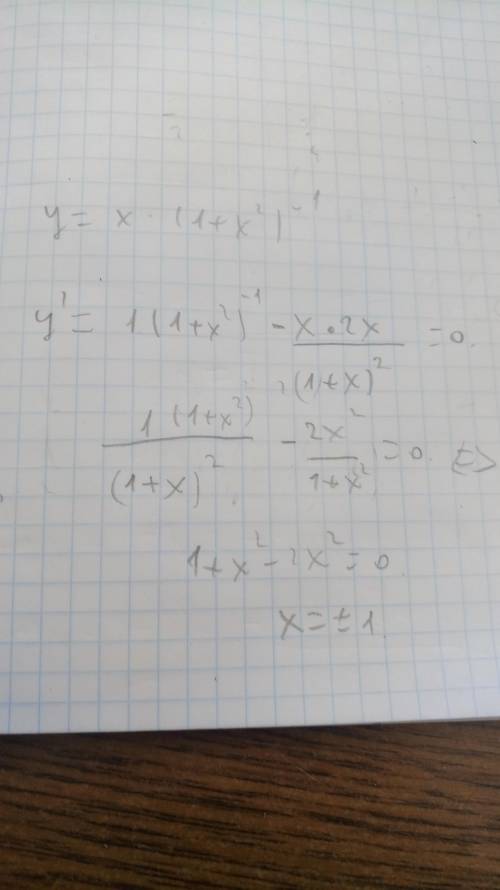 y = x · (1+x²)⁻¹
y' = 1(1+x²)⁻¹ - x·2x/(1+x)² = 0.
1(1+x²)/(1+x)² - 2x²/(1+x²) = 0. <=>
1+x²-2x² = 0
x = ±1